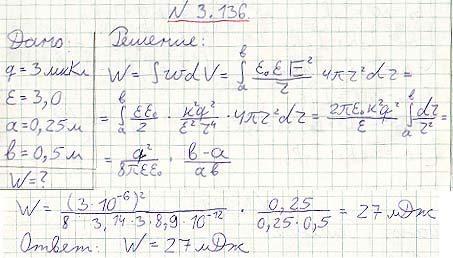 N 3.136.
Дано:
q = 3 мкКл
ε = 3,0
a = 0,25 м
b = 0,5 м
W = ?
Решение:
W = ∫ w dV = ∫ₐᵇ (ε₀ ε E²)/2 4πr² dr =
= ∫ₐᵇ (εε₀)/2 · (k²q²)/(ε²r⁴) · 4πr² dr = (2πε₀k²q²)/ε ∫ₐᵇ dr/r² =
= q²/(8πεε₀) · (b-a)/(ab)
W = (3·10⁻⁶)²/(8·3,14·3·8,9·10⁻¹²) · 0,25/(0,25·0,5) = 27 мДж
Ответ: W = 27 мДж